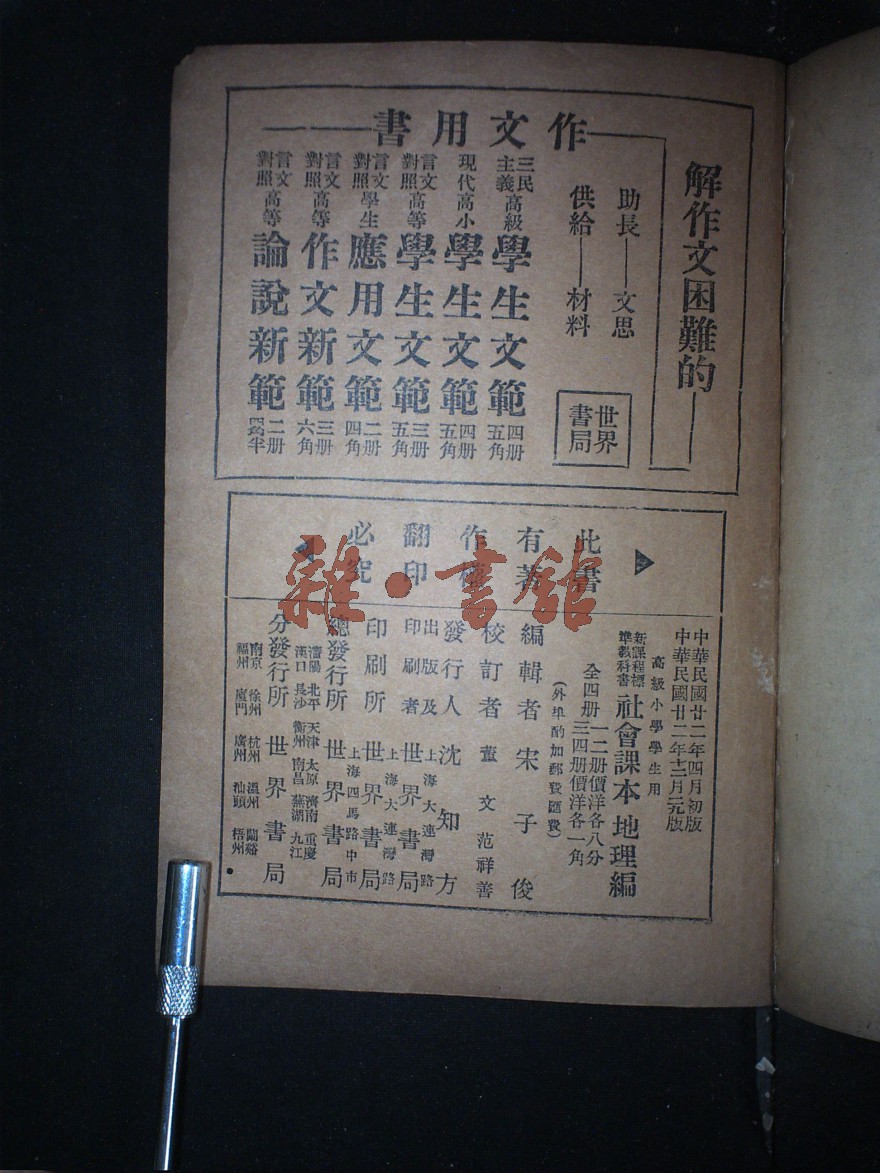 解作文困難的
助長——文思
供給——材料
世界書局
作文用書
三民主義高級學生文範四册五角
現代高小學生文範四册五角
言文對照高等學生文範三册五角
言文對照學生應用文範二册四角
言文對照高等作文新範三册六角
言文對照高等論說新範二册
此書有著作權翻印必究
中華民國廿二年四月初版
中華民國廿二年十二月元版
高級小學學生用
新課程標準教科書社會課本地理編
全四册一二册價洋各八分
三四册價洋各一角
(外埠酌加郵費匯費)
編輯者宋子俊
校訂者董文范祥善
發行人沈知方
出版及印刷者上海大連灣路世界書局
印刷所上海大連灣路世界書局
總發行所上海四馬路中市世界書局
分發行所世界書局
瀋陽北平天津太原濟南重慶
漢口長沙衢州南昌蕪湖九江
南京徐州杭州溫州蘭谿
福州廈門廣州汕頭梧州
雜·書館